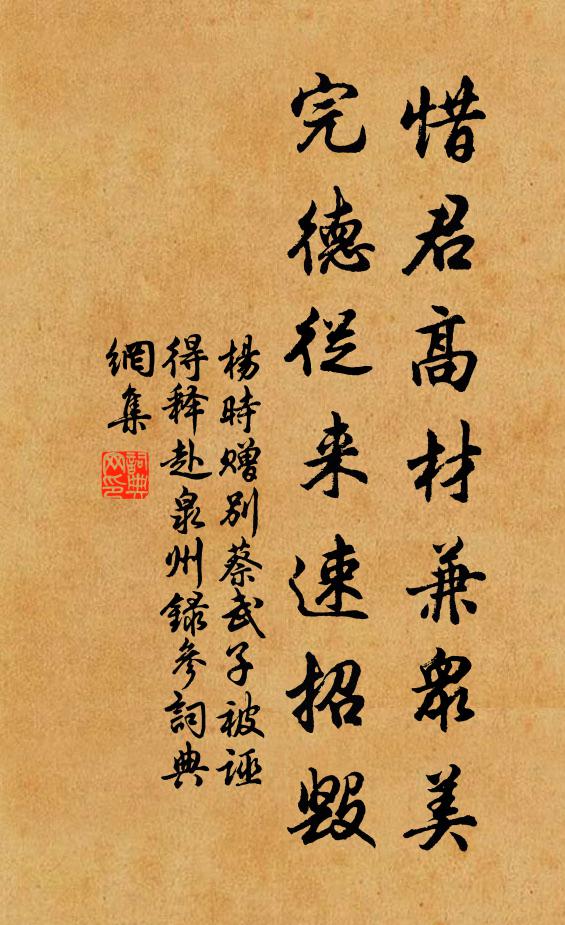 惜君高材兼衆美
完德從来速招毀
楊時贈别蔡武子被誣
得释赴泉州録參詞典
網集
詞典
网印